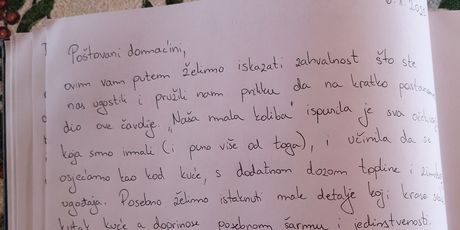 Poštovani domaćini,
ovim vam putem želimo iskazati zahvalnost što ste
nas ugostili i pružili nam priliku da na kratko postanemo
dio ove čarolije. "Naša mala koliba" ispunila je sva
koja smo imali (i puno više od toga), i učinila da se
osjećamo kao kod kuće, s dodatnom dozom topline i
ugođaja. Posebno želimo istaknuti male detalje koji krase
kutak kuće a doprinose posebnom šarmu i jedinstvenosti.